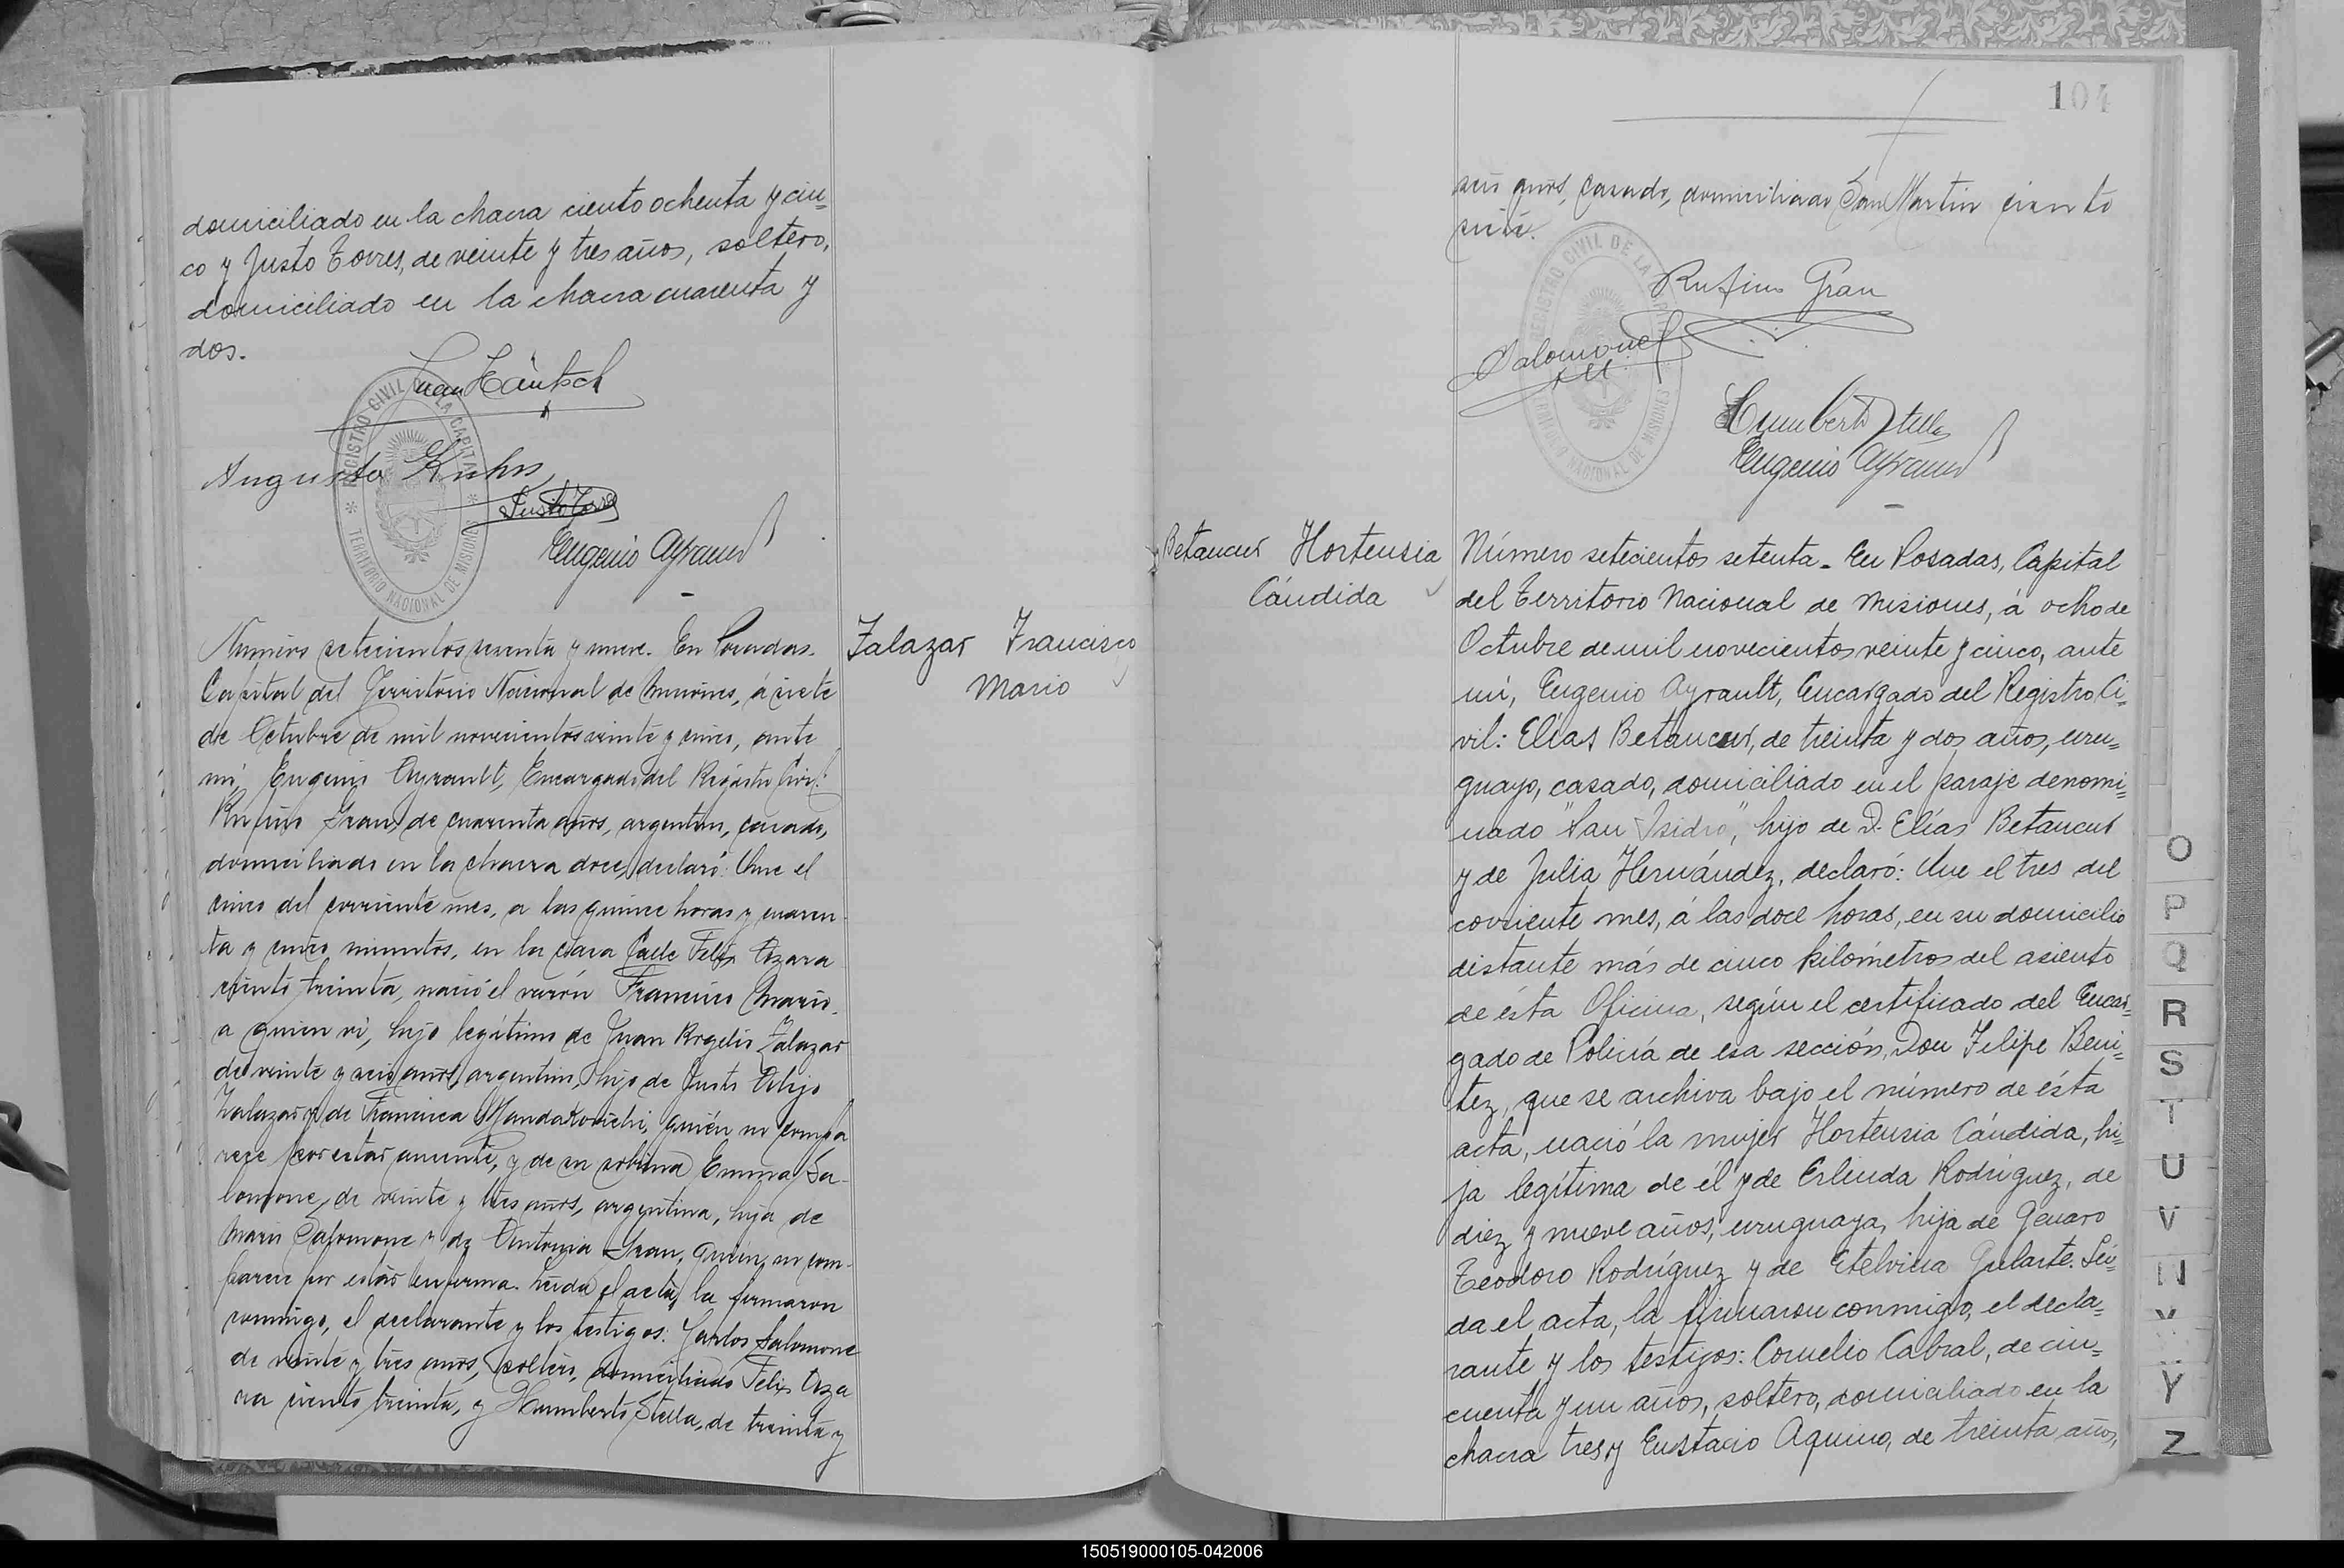 domiciliado en la chacra ciento ochenta y cin-
co y Justo Torres, de veinte y tres años, soltero,
domiciliado en la chacra cuarenta y
dos.
Juan Häntsch
REGISTRO CIVIL DE LA CAPITAL
TERRITORIO NACIONAL DE MISIONES
Augusto Kuhn
Justo Torres
Eugenio Ayrault
Numero setecientos sesenta y nueve. En Posadas.
Capital del Territorio Nacional de Misiones, á siete
de Octubre de mil novecientos veinte y cinco, ante
mi, Eugenio Ayrault, Encargado del Registro Civil:
Rufino Gran, de cuarenta años, argentino, casado,
domiciliado en la chacra doce, declaró: Que el
cinco del corriente mes, a las quince horas y cuaren-
ta y cinco minutos, en la casa Calle Felix Azara
ciento treinta, nació el varón Francisco Mario.
a quien vi, hijo legítimo de Juan Rogelio Zalazar
de veinte y seis años, argentino, hijo de Justo
Zalazar y de Francisca quién no compa
rece por estar ausente, y de su sobrina Emma Sa-
lomone, de veinte y tres años, argentina, hija de
Mario Salomone y de Antonia Gran, quien no com-
parece por estar enferma. Leida el acta, la firmaron
conmigo, el declarante y los testigos: Carlos Salomone
de veinte y tres años, soltero, domiciliado Felix Aza
ra ciento treinta, y Humberto Stella, de treinta y
Zalazar Francisco
Mario
104
seis años, casado, domiciliado San Martin ciento
seis.
REGISTRO CIVIL DE LA CAPITAL
TERRITORIO NACIONAL DE MISIONES
Rufino Gran
Salomone
Humberto Stella
Eugenio Ayrault
Betancur Hortensia
Cándida
Número setecientos setenta. En Posadas, Capital
del Territorio Nacional de Misiones, á ocho de
Octubre de mil novecientos veinte y cinco, ante
mi, Eugenio Ayrault, Encargado del Registro Ci-
vil: Elías Betancur, de treinta y dos años, uru-
guayo, casado, domiciliado en el paraje denomi-
nado "San Isidro", hijo de D. Elías Betancur
y de Julia Hernández, declaró: Que el tres del
corriente mes, á las doce horas, en su domicilio
distante más de cinco kilómetros del asiento
de ésta Oficina, según el certificado del Encar-
gado de Policía de esa sección, Don Felipe Beni-
tez, que se archiva bajo el número de ésta
acta, nació la mujer Hortensia Cándida, hi-
ja legítima de él y de Erlinda Rodríguez, de
diez y nueve años, uruguaya, hija de Genaro
Teodoro Rodríguez y de Etelvina Gularte. Leí-
da el acta, la firmaron conmigo, el decla-
rante y los testigos: Cornelio Cabral, de cin-
cuenta y un años, soltero, domiciliado en la
chacra tres y Eustacio Aquino, de treinta años,
O
P
Q
R
S
T
U
V
Y
Z
150519000105-042006